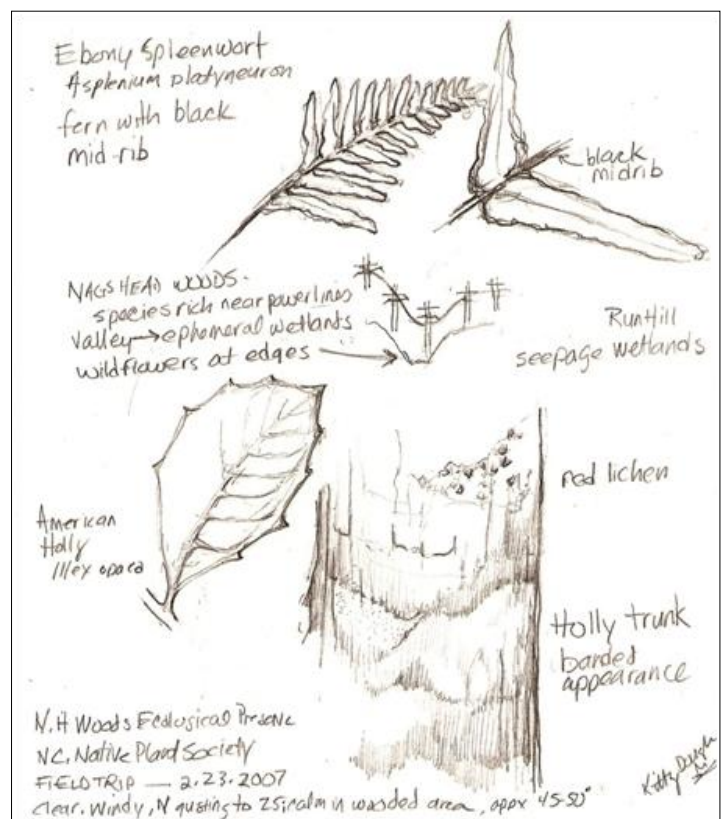 Ebony Spleenwort
Asplenium platyneuron
fern with black
mid-rib
black
midrib
NAGS HEAD WOODS.
species rich near powerlines
valley → ephemeral wetlands
wildflowers at edges
Run Hill
seepage wetlands
red lichen
American
Holly
Illex opaca
Holly trunk
banded
appearance
N.H Woods Ecological Preserve
NC. Native Plant Society
FIELD TRIP — 2.23.2007
clear. Windy, N gusting to 25; calm in wooded area, appx 45-50°
Kitty